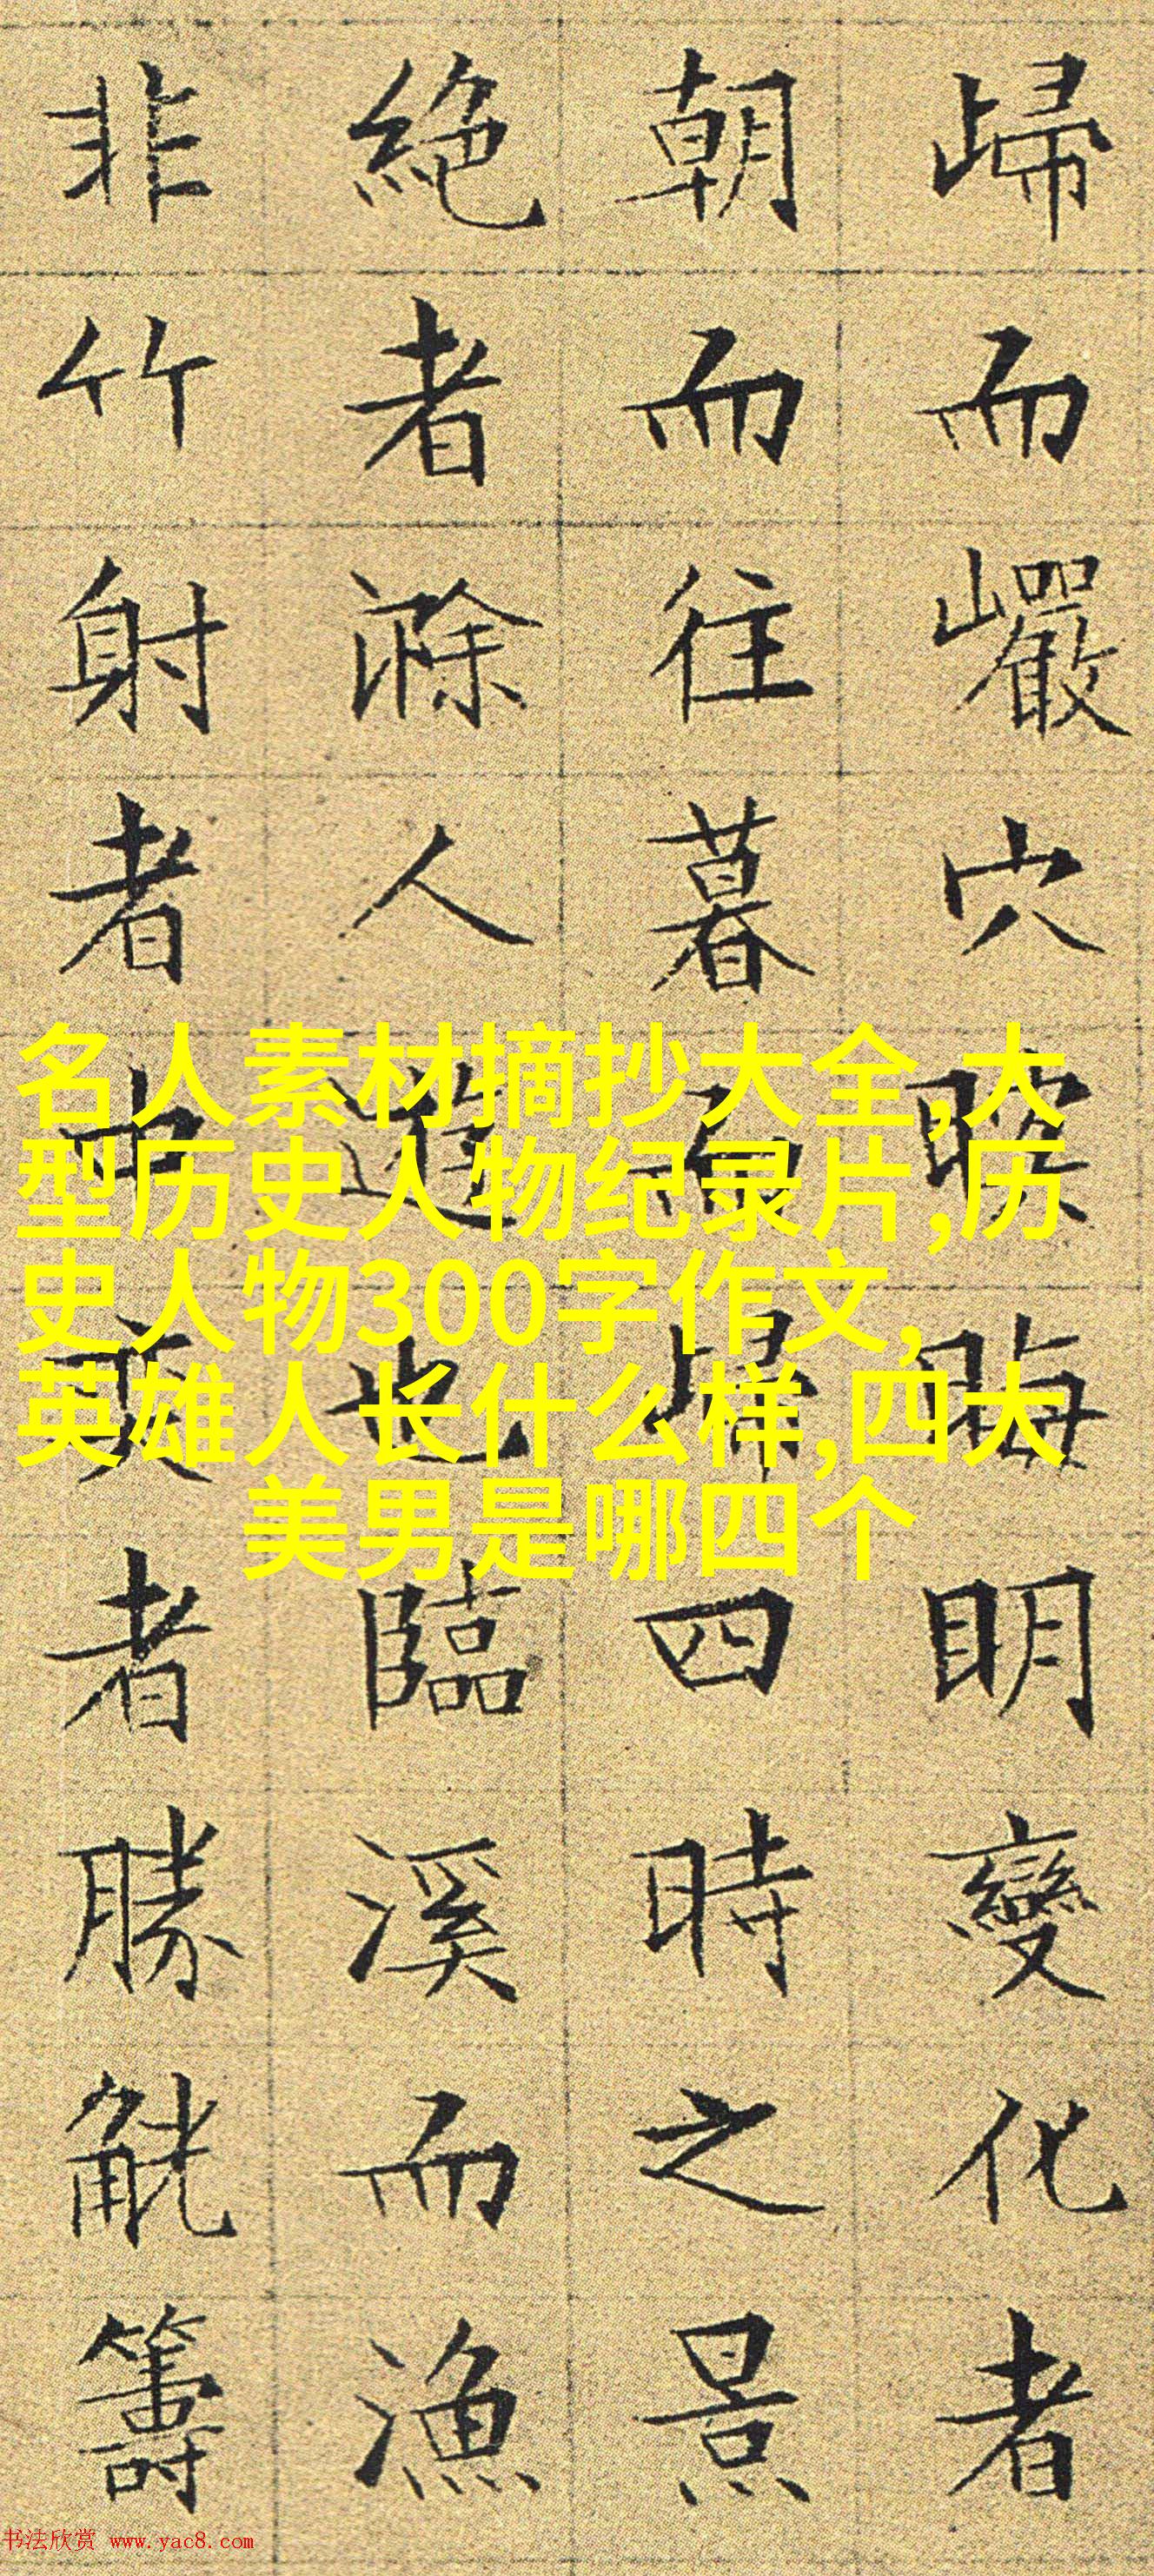 歸而巖穴暝晦明變化者
朝而往暮而歸四時之景
絕者滁人遊也臨溪而漁
非竹射者中奕者勝觥籌
名人素材摘抄大全,大
型历史人物纪录片,历
史人物300字作文,
英雄人长什么样,四大
美男是哪四个
书法欣赏 www.yac8.com